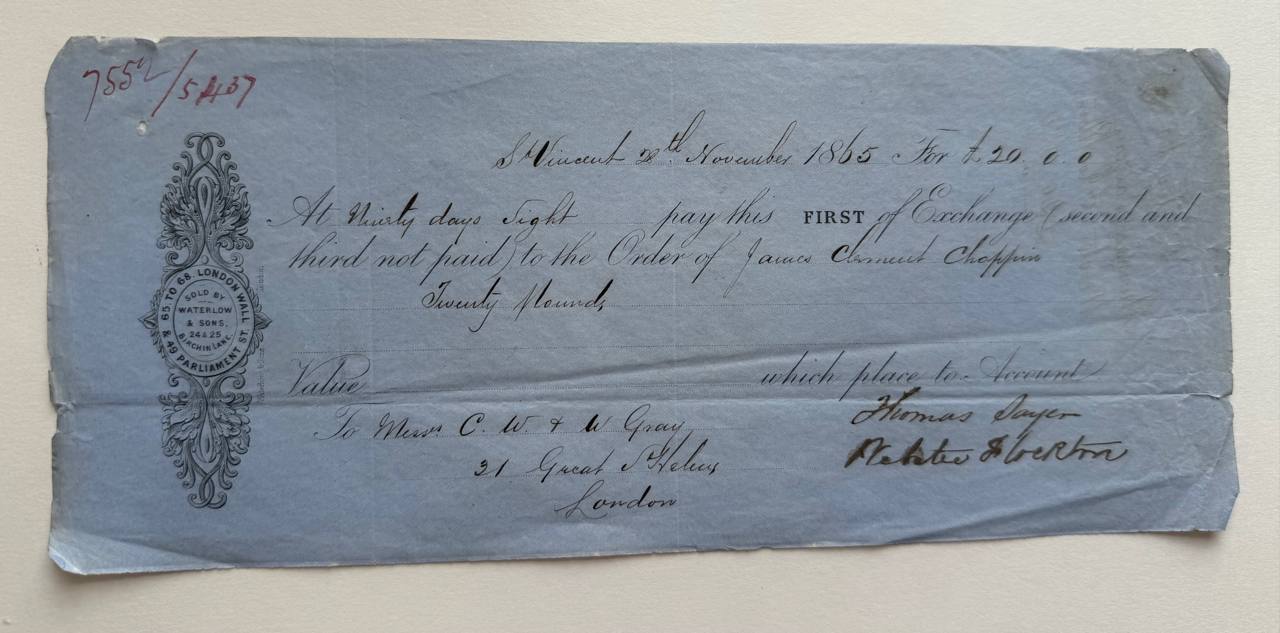 7552/5437
St Vincent 28th November 1865 For £20.0.0
At Ninety days Sight pay this FIRST of Exchange (second and
third not paid) to the Order of James Clement Choppin
Twenty Pounds
Value which place to Account
To Messrs C. W. & W Gray
31 Great St Helens
London
Thomas Sayer
65 TO 68, LONDON WALL & 49 PARLIAMENT ST.
SOLD BY
WATERLOW
& SONS.
24 & 25
BIRCHIN LANE.